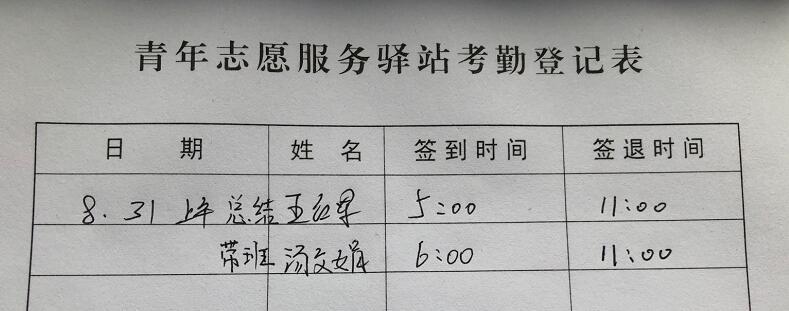 青年志愿服务驿站考勤登记表
日 期 姓 名 签到时间 签退时间
8.31 上午 总结 王红军 5:00 11:00
带班 汤文娟 6:00 11:00